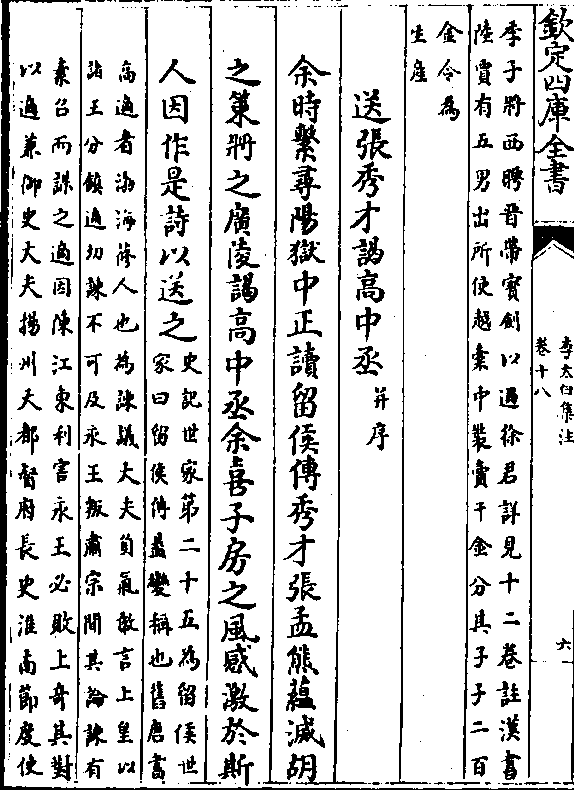 欽定四庫全書
李太白集注
卷十八
六
季子將西聘晉帶寶劍以過徐君詳見十二卷註漢書
陸賈有五男出所使越橐中裝賣千金分其子子二百
金令為
生產
送張秀才謁高中丞并序
余時繫尋陽獄中正讀留侯傳秀才張孟熊蘊滅胡
之策將之廣陵謁高中丞余喜子房之風感激於斯
人因作是詩以送之
史記世家第二十五為留侯世
家曰留侯傳蓋變稱也舊唐書
高適者渤海蓨人也為諫議大夫負氣敢言上皇以
諸王分鎮適切諫不可及永王叛肅宗聞其論諫有
素召而謀之適因陳江東利害永王必敗上奇其對
以適兼御史大夫揚州大都督府長史淮南節度使